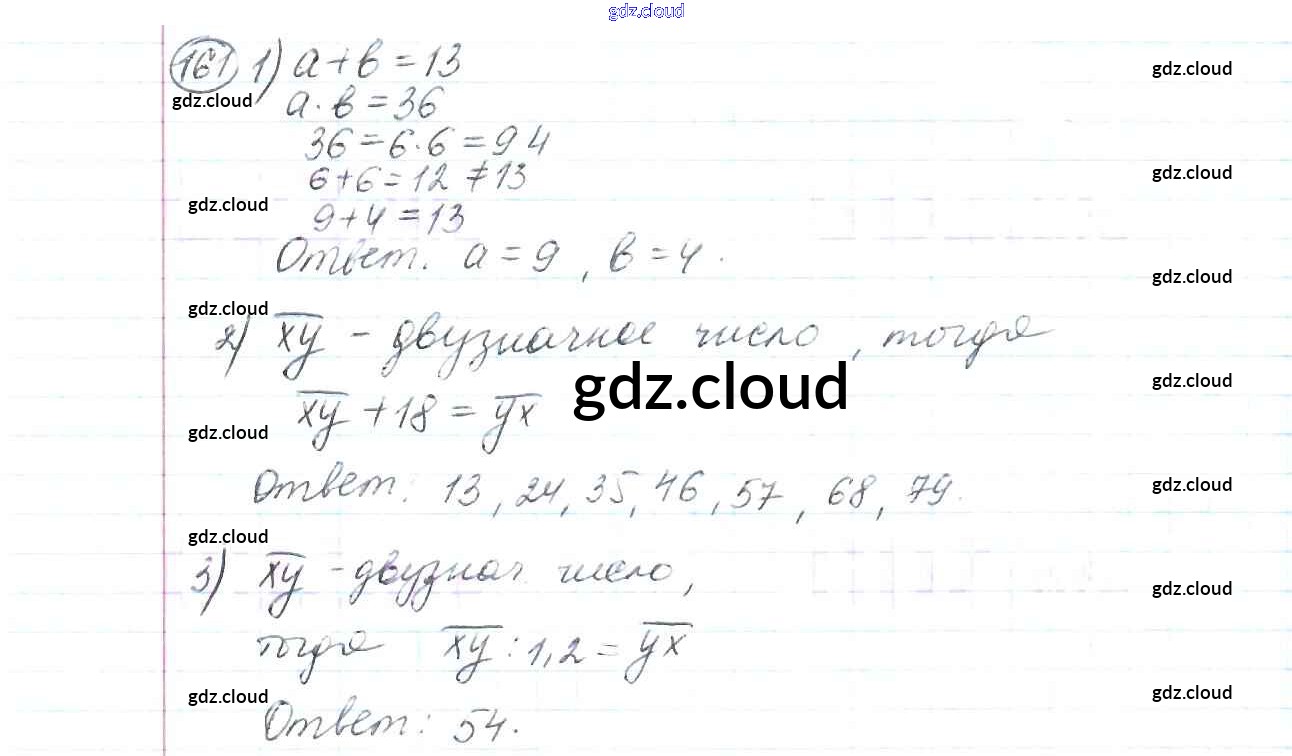 gdz.cloud
161 1) a+b=13
gdz.cloud
gdz.cloud
a·b=36
36=6·6=9 4
gdz.cloud
6+6=12≠13
gdz.cloud
9+4=13
Ответ. a=9, b=4.
gdz.cloud
gdz.cloud
2) xy - двузначное число, тогда
gdz.cloud
gdz.cloud
xy+18=yx
gdz.cloud
Ответ: 13, 24, 35, 46, 57, 68, 79.
gdz.cloud
gdz.cloud
3) xy - двузнач. число,
gdz.cloud
тогда xy:1,2=yx
gdz.cloud
gdz.cloud
Ответ: 54.